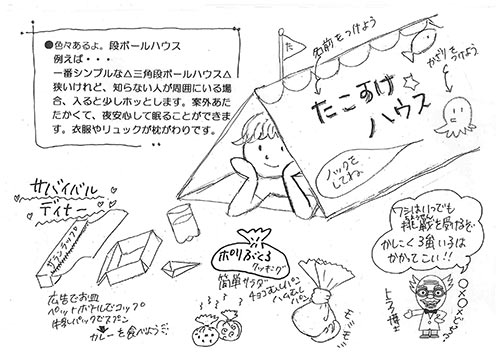 ●色々あるよ。段ボールハウス
例えば・・・
一番シンプルな△三角段ボールハウス△
狭いけれど、知らない人が周囲にいる場
合、入ると少しホッとします。案外あた
たかくて、夜安心して眠ることができま
す。衣服やリュックが枕がわりです。
た
名前をつけよう
かざりを
つけよう
たこすけ
ハウス
ノックを
してね。
サバイバル
ディナー
サランラップ
広告でお皿
ペットボトルでコップ
牛乳パックでスプーン
カレーを食べよう
ポリぶくろ
クッキング
簡単サラダ
チョコむしパン
ハムむし
パン
ワシはいつでも
挑戦を受けるぞ
かしこく3角い3は
かかってこい!!
トラブ博士